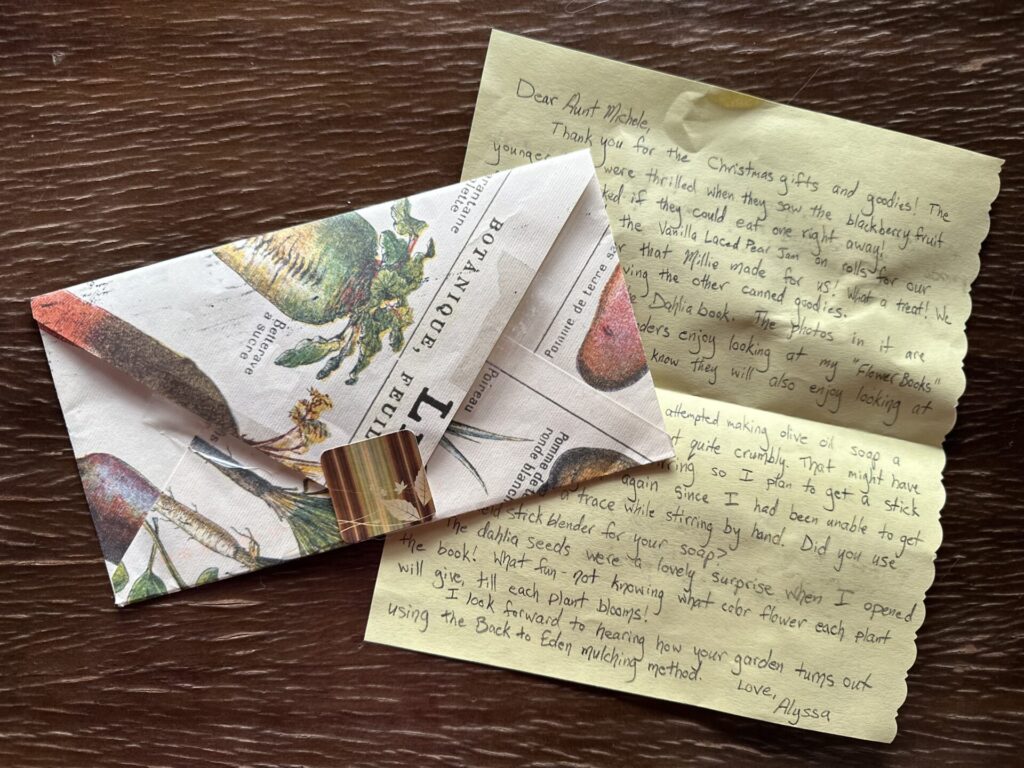 Dear Aunt Michele,
Thank you for the Christmas gifts and goodies! The
younger were thrilled when they saw the blackberry fruit
ked if they could eat one right away!
the Vanilla Laced Pear Jam on rolls for our
that Millie made for us! What a treat! We
ving the other canned goodies.
Dahlia book. The photos in it are
ders enjoy looking at my "Flower Books"
know they will also enjoy looking at
attempted making olive oil soap a
quite crumbly. That might have
rring so I plan to get a stick
again since I had been unable to get
a trace while stirring by hand. Did you use
stick blender for your soap?
The dahlia seeds were a lovely surprise when I opened
the book! What fun not knowing what color flower each plant
will give, till each plant blooms!
I look forward to hearing how your garden turns out
using the Back to Eden mulching method.
Love,
Alyssa
rantaine
lette
BOTANIQUE,
FEUIL
L
Betterave
a sucre
Poireau
Pomme de terre sa
Pomme de
ronde blanch